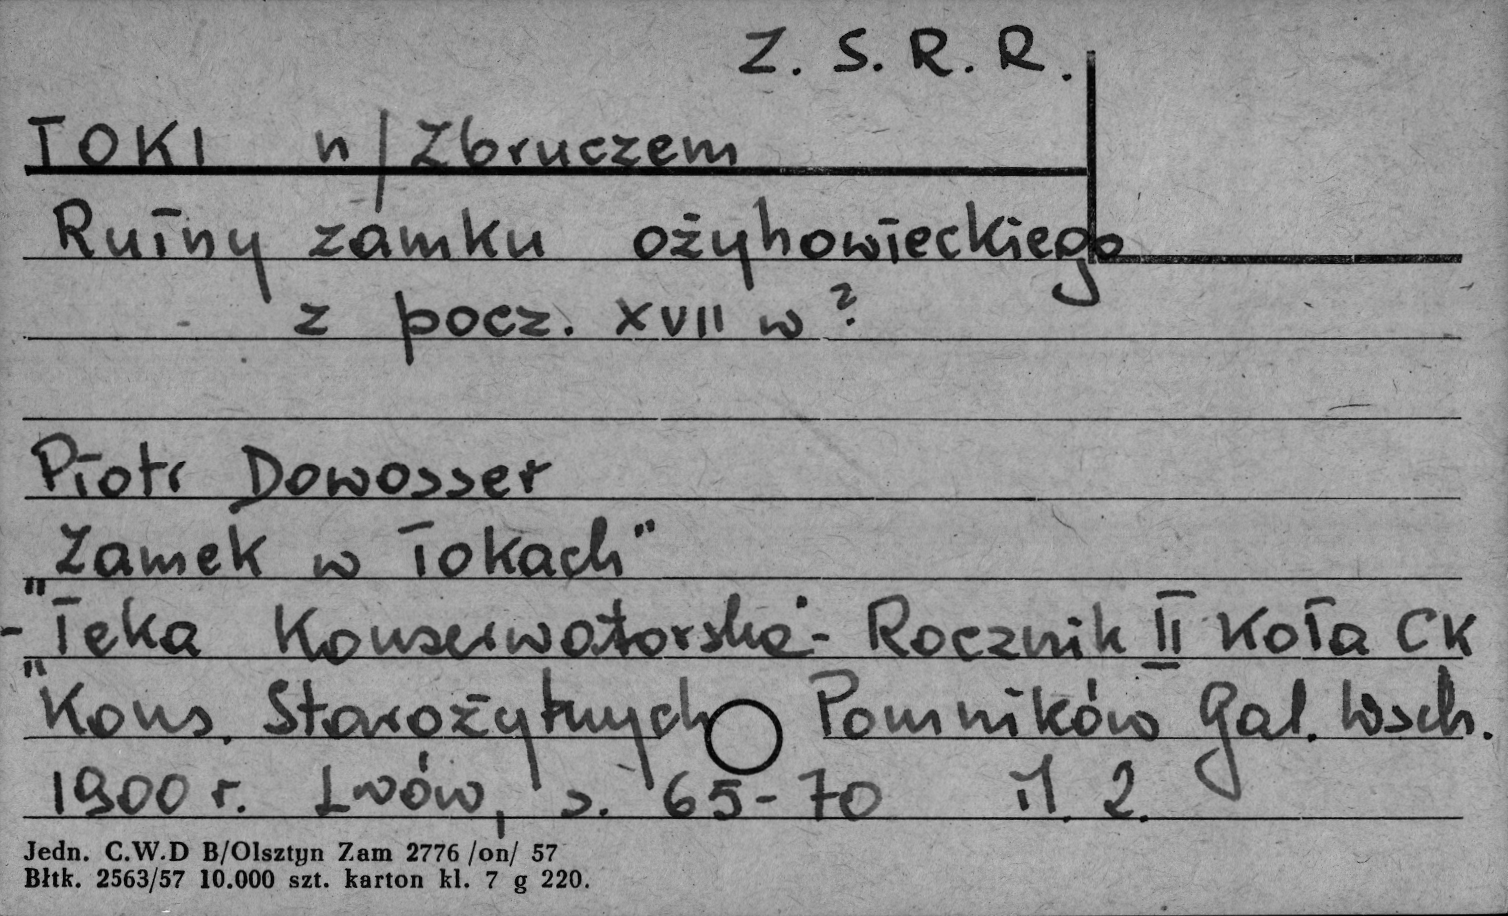 Z. S. R. R.
TOKI n/Zbruczem
Ruiny zamku ożyhowieckiego
z pocz. XVII w?
Piotr Dowosser
"Zamek w Tokach"
- "Teka Konserwatorska" - Rocznik II Koła CK
"Kons. Starożytnych Pomników Gal. Wsch.
1900 r. Lwów, s. 65-70 il. 2.
Jedn. C.W.D B/Olsztyn Zam 2776 /on/ 57
Błtk. 2563/57 10.000 szt. karton kl. 7 g 220.